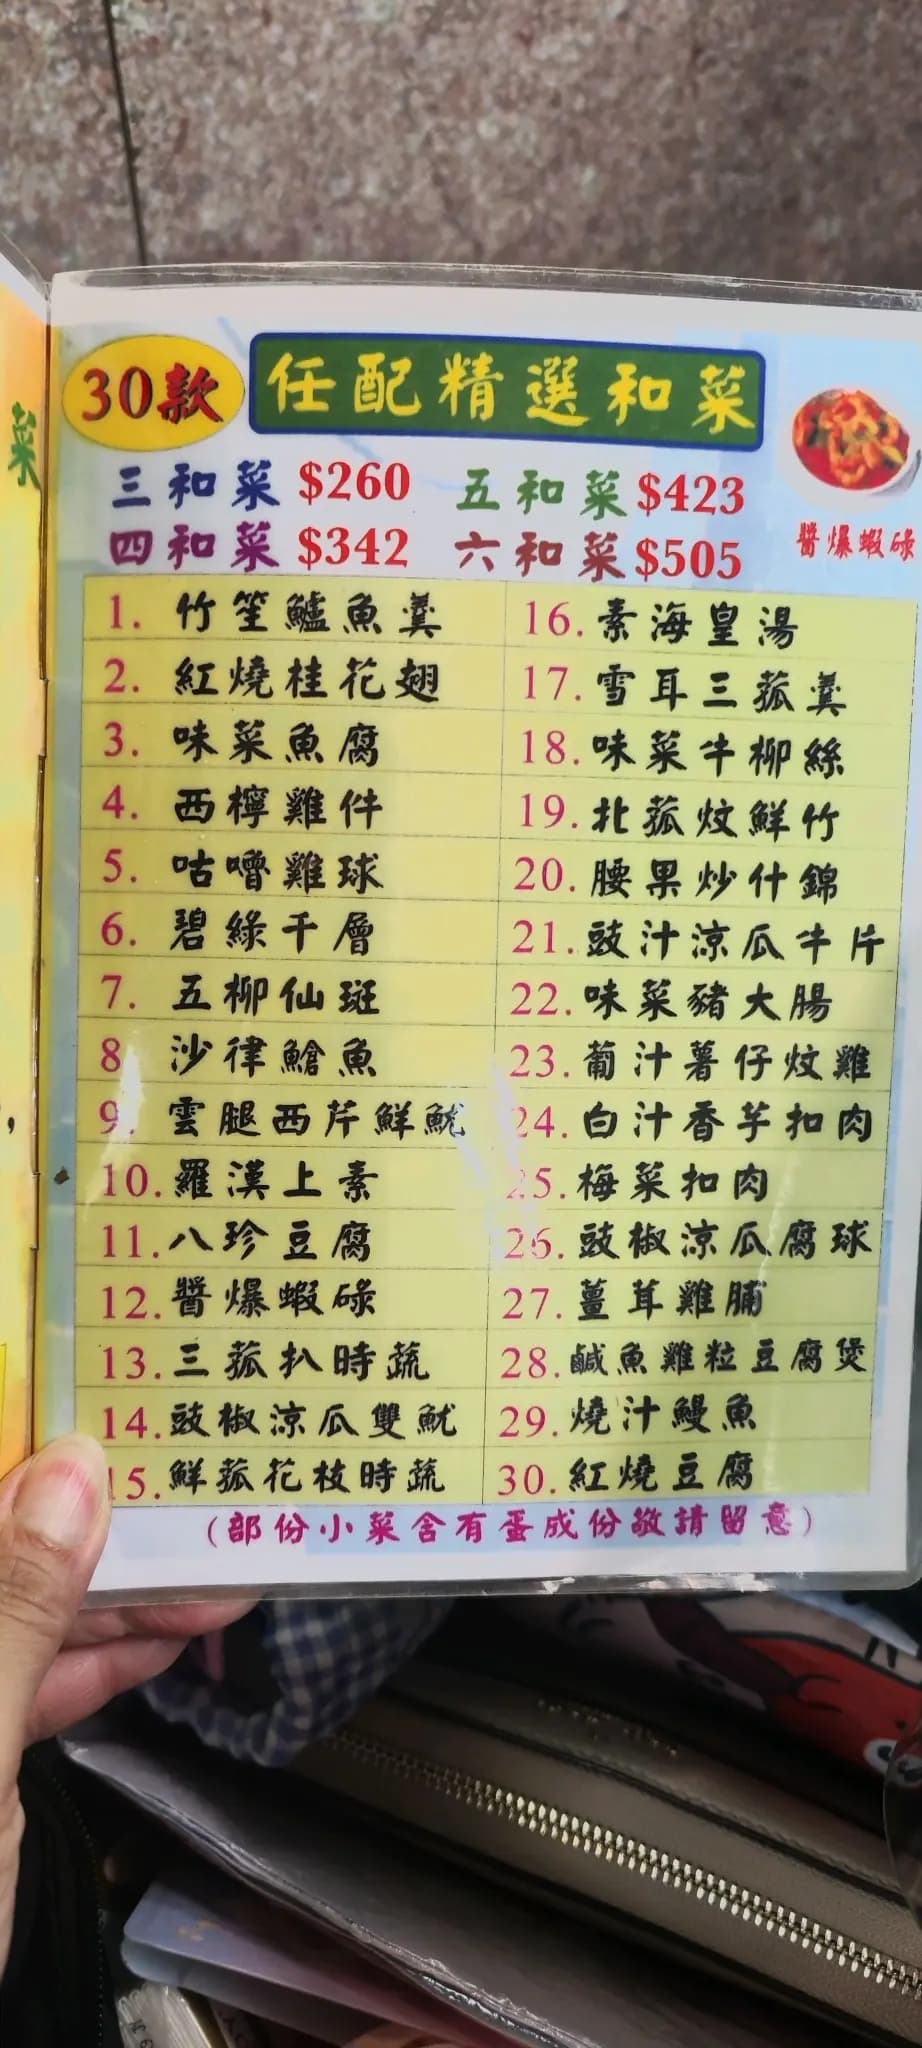 菜
30款 任配精選和菜
三和菜 $260 五和菜 $423
四和菜 $342 六和菜 $505
醬爆蝦碌
1. 竹笙鱸魚羹
2. 紅燒桂花翅
3. 味菜魚腐
4. 西檸雞件
5. 咕嚕雞球
6. 碧綠千層
7. 五柳仙斑
8 沙律鎗魚
9. 雲腿西芹鮮魷
10. 羅漢上素
11. 八珍豆腐
12. 醬爆蝦碌
13. 三菰扒時蔬
14. 豉椒涼瓜雙魷
15. 鮮菰花枝時蔬
16. 素海皇湯
17. 雪耳三菰羹
18. 味菜牛柳絲
19. 北菰炆鮮竹
20. 腰果炒什錦
21. 豉汁涼瓜牛片
22. 味菜豬大腸
23. 葡汁薯仔炆雞
24. 白汁香芋扣肉
25. 梅菜扣肉
26. 豉椒涼瓜腐球
27. 薑茸雞脯
28. 鹹魚雞粒豆腐煲
29. 燒汁鰻魚
30. 紅燒豆腐
(部份小菜含有蛋成份敬請留意)